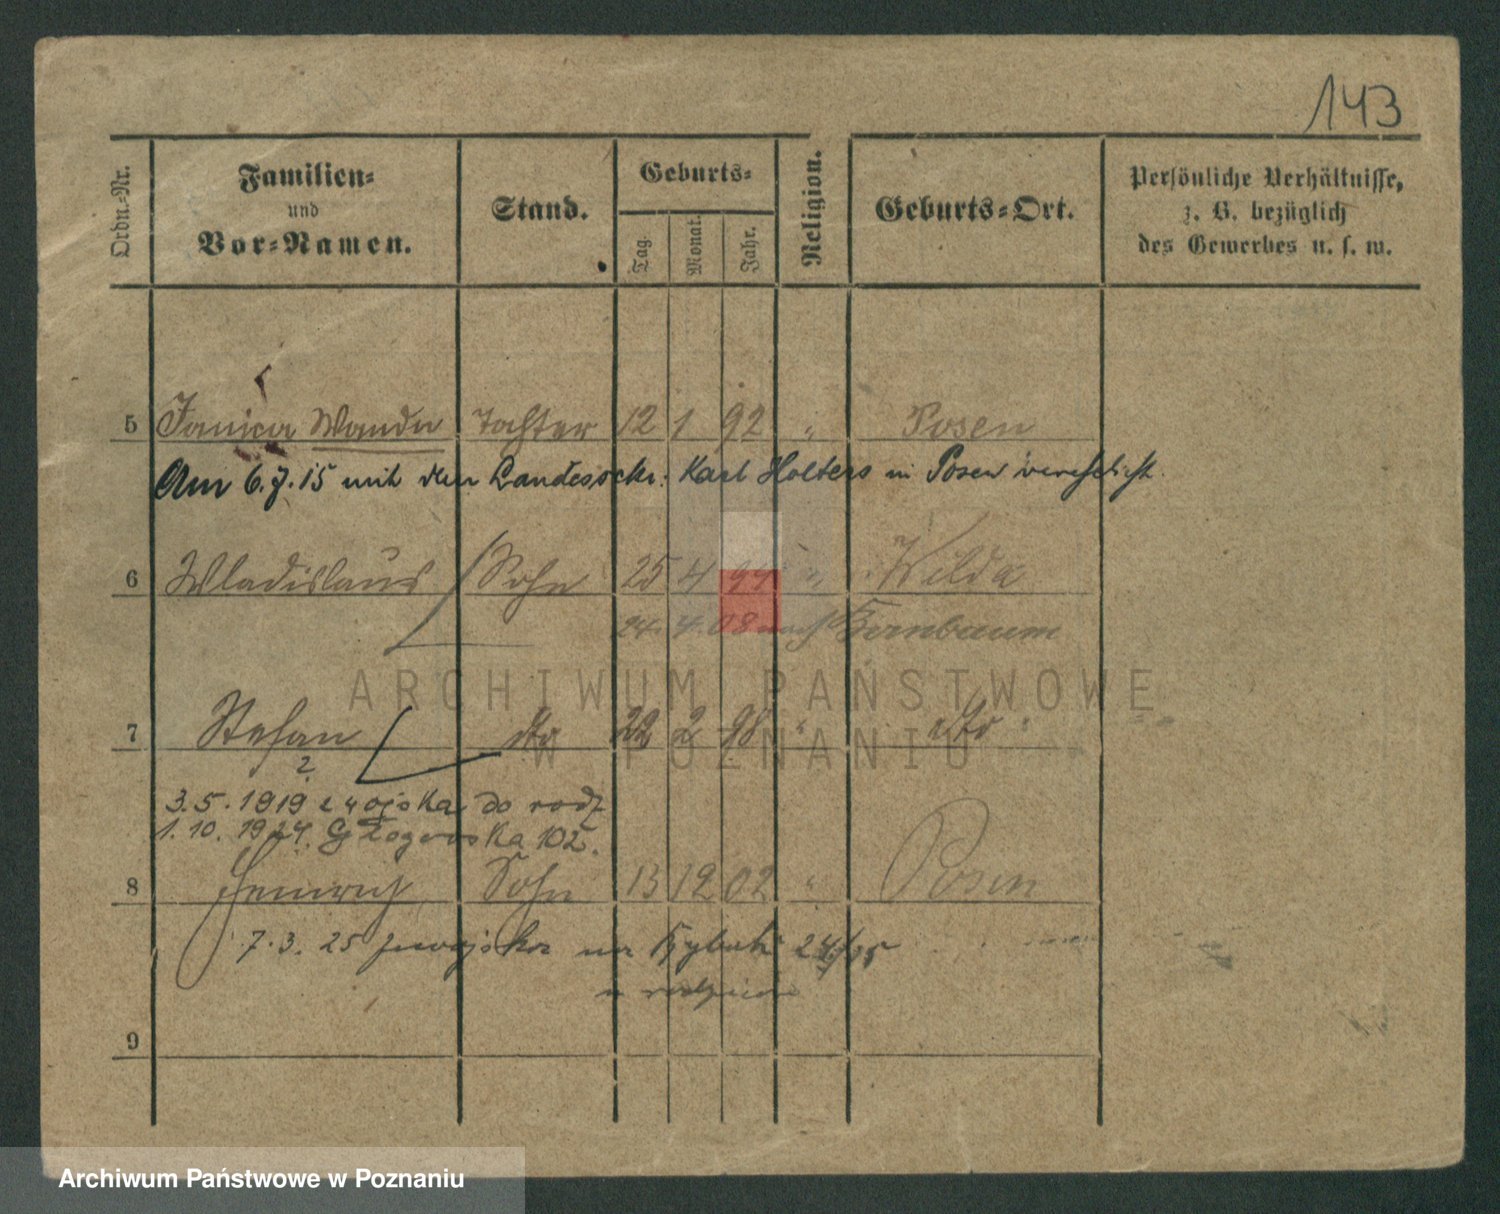 143
Ordn.-Nr. Familien- und Vor-Namen. Stand. Geburts- Tag. Monat. Jahr. Religion. Geburts-Ort. Persönliche Verhältnisse, z. B. bezüglich des Gewerbes u. s. w.
5 Wanda Tochter 12 1 92 " Posen
Am 6.7.15 mit dem Landessekr. Karl Holters in Posen verehelicht.
6 Wladislaus Sohn 25 4 " Wilda
24. 4. 08 nach Birnbaum
7 Stefan dto 22 2 98 " dto
?
3.5.1919 z wojska do rodz
1.10.1924. Głogowska 102.
8 Heinrich Sohn 13 12 02 " Posen
7.3.25 na
9
ARCHIWUM PAŃSTWOWE
W POZNANIU
Archiwum Państwowe w Poznaniu